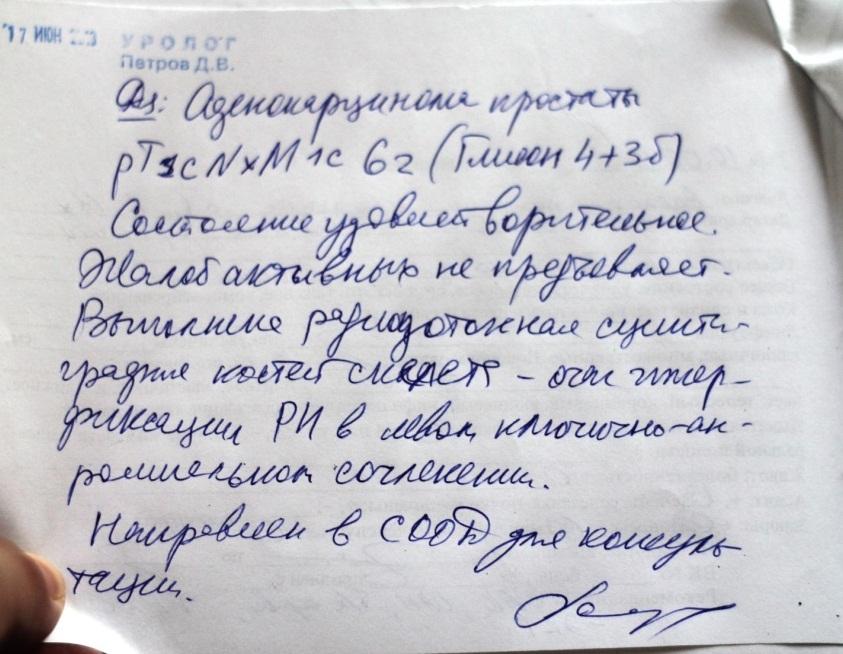 17 ИЮН
УРОЛОГ
Петров Д.В.
Дз: Аденокарцинома простаты
pT3cNxM1c 6г (Глисон 4+3б)
Состояние удовлетворительное.
Жалоб активных не предъявляет.
Выполнена радиоизотопная сцинти-
графия костей скелета - очаг гипер-
фиксации РИ в левом ключично-ак-
ромиальном сочленении.
Направлен в СООД для консуль
тации.